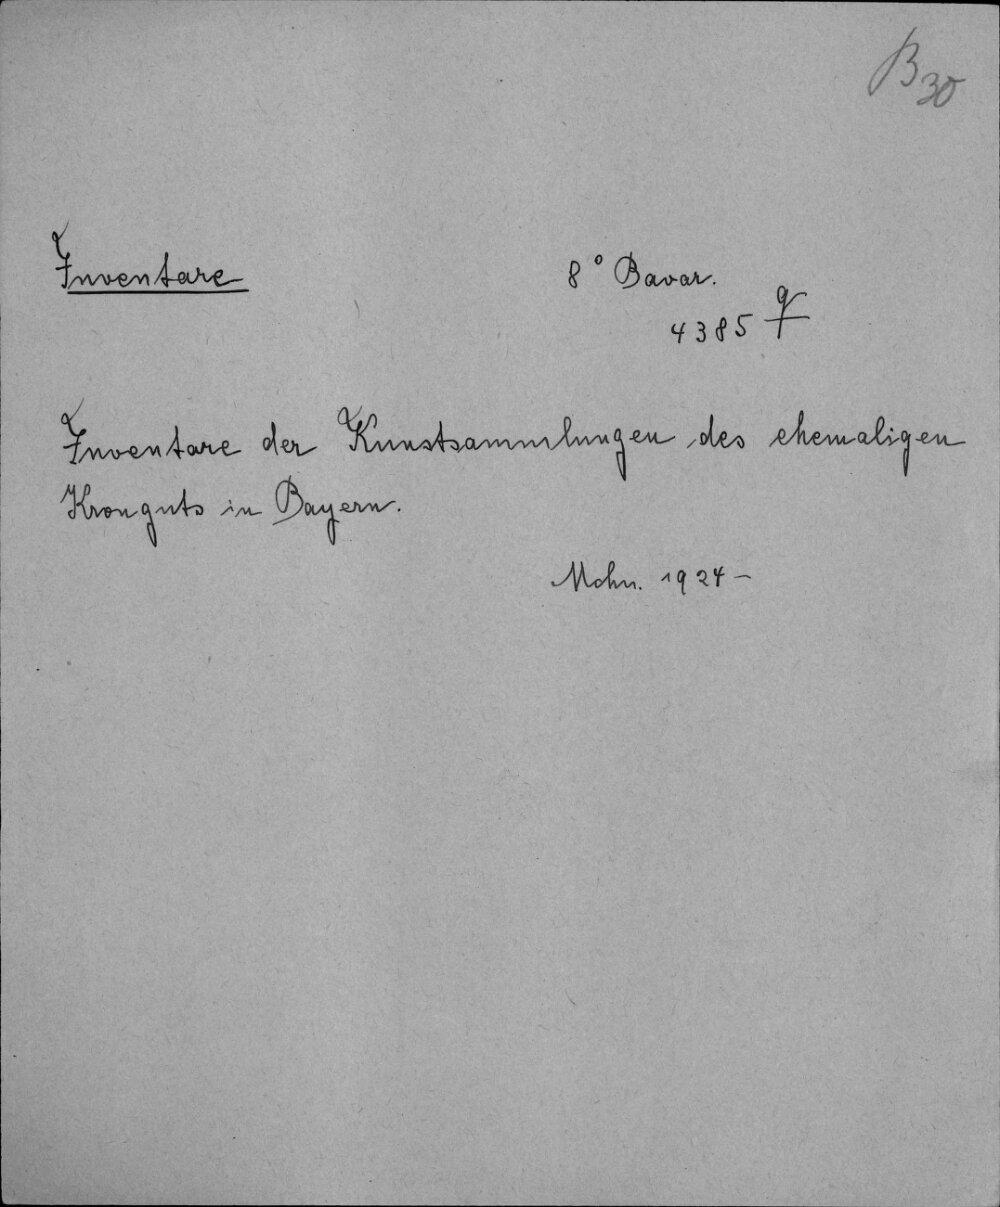 B30
Inventare
8° Bavar.
4385 q
Inventare der Kunstsammlungen des ehemaligen
Kronguts in Bayern.
Mchn. 1924 –